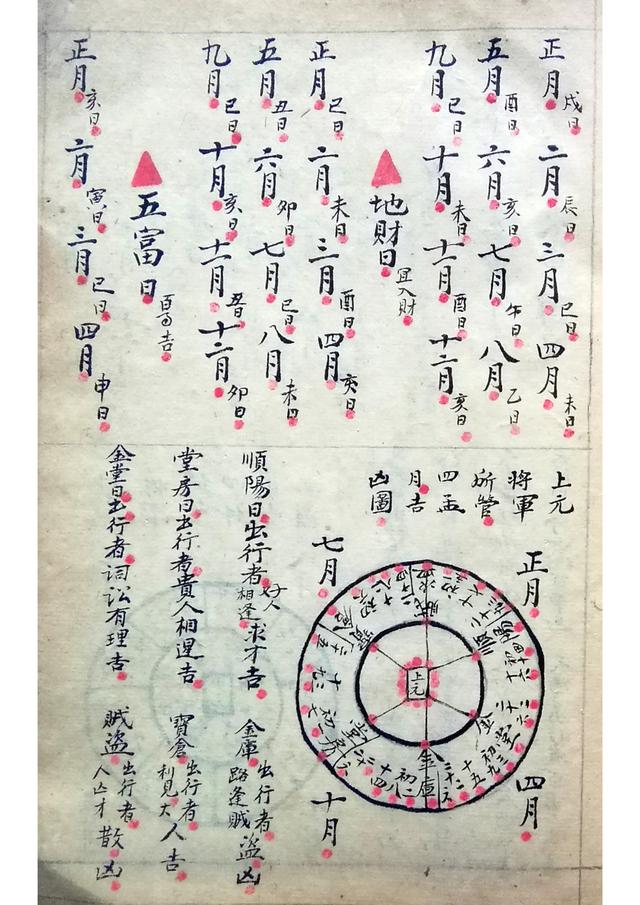 正月戌日二月辰日三月巳日四月未日
五月酉日六月亥日七月午日八月乙日
九月巳日十月未日十一月酉日十二月亥日
地財日宜入財
正月巳日二月未日三月酉日四月亥日
五月丑日六月卯日七月巳日八月未日
九月巳日十月亥日十一月丑日十二月卯日
五富日百事吉
正月亥日二月寅日三月巳日四月申日
上元
將軍
所管
四孟
月吉
凶圖
正月
四月
七月
十月
上元
金庫
順陽
金堂
順陽日出行者好人相逢求才吉
金庫出行者路逢賊盜凶
堂房日出行者貴人相遇吉
寶倉出行者利見大人吉
金堂日出行者詞訟有理吉
賊盜出行者人亡才散凶